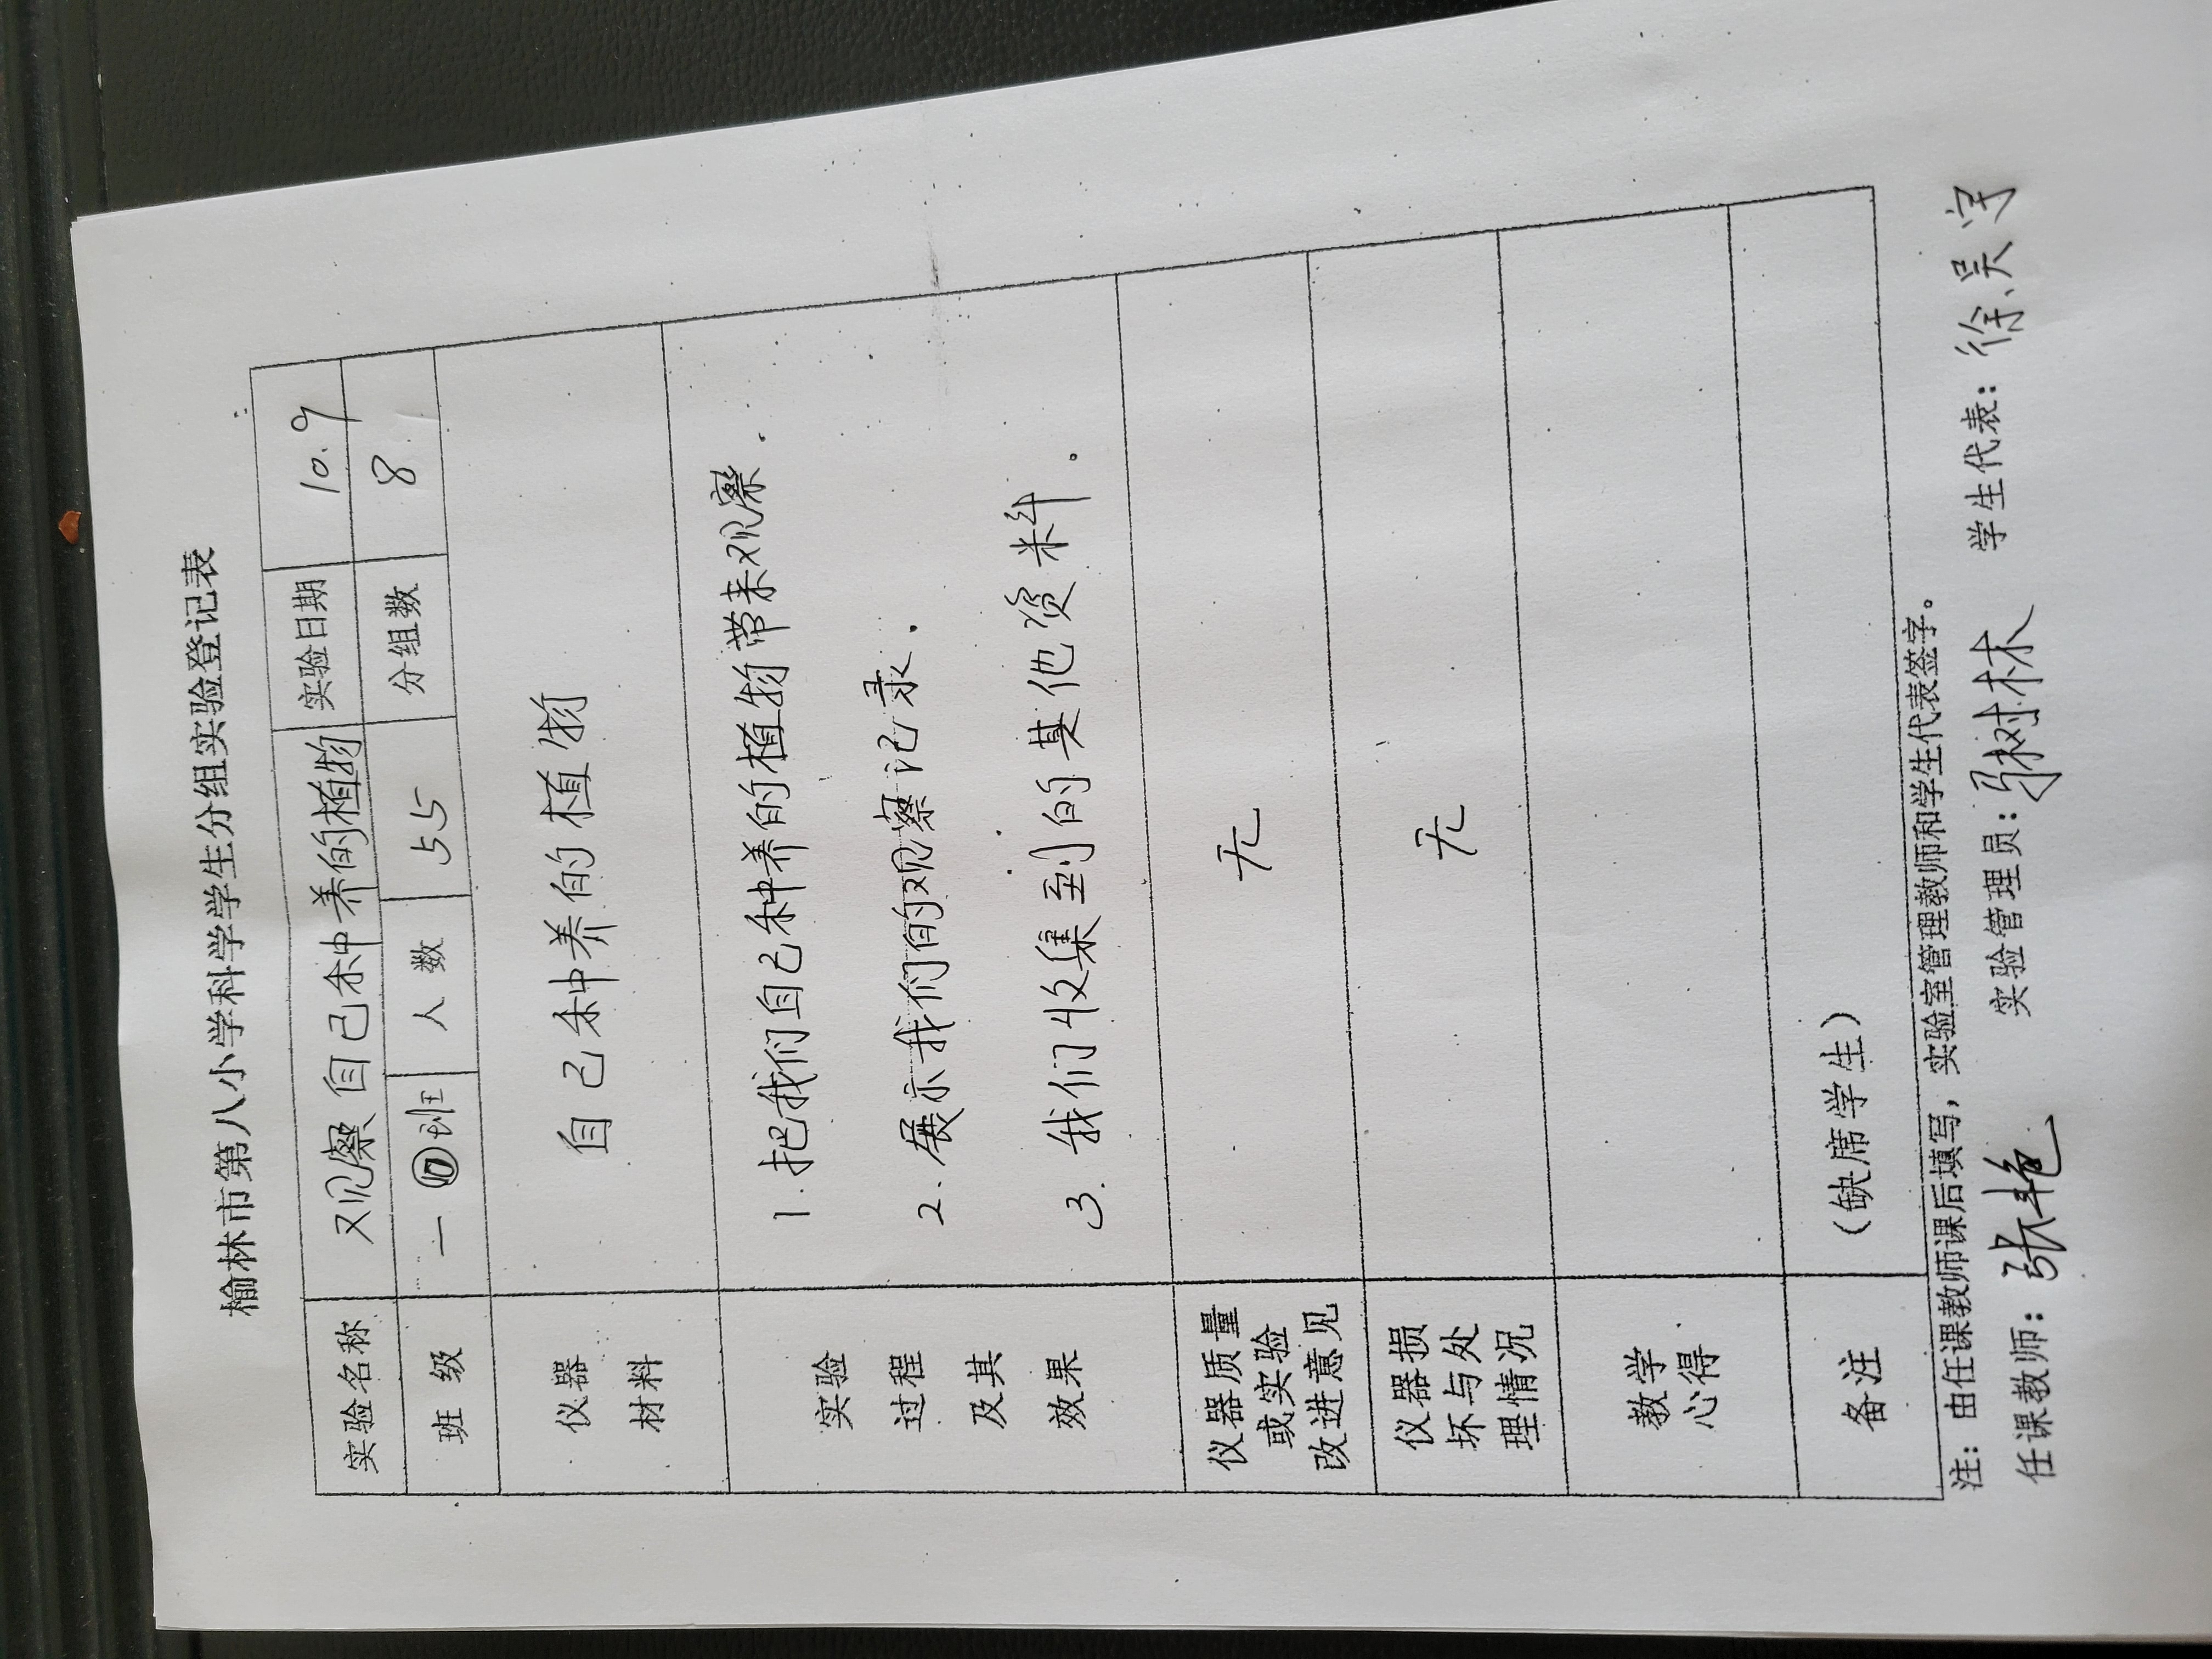 榆林市第八小学科学学生分组实验登记表
实验名称 观察自己种养的植物 实验日期 10.9
班级 一 班 人数 55 分组数 8
仪器
材料
自己种养的植物
实验
过程
及其
效果
1.把我们自己种养的植物带来观察.
2.展示我们的观察记录.
3.我们收集到的其他资料。
仪器质量
或实验
改进意见
无
仪器损
坏与处
理情况
无
教学
心得
备注 (缺席学生)
注：由任课教师课后填写，实验室管理教师和学生代表签字。
任课教师：张艳 实验管理员： 树林 学生代表：徐昊宇